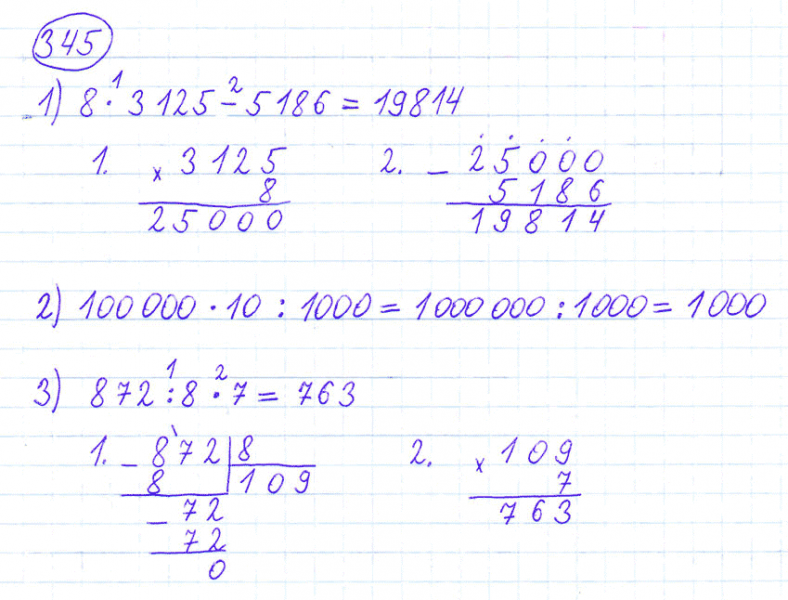 345
1) 8 · 3125 - 5186 = 19814
1 2
1. × 3125
8
25000
2. - 25000
5186
19814
2) 100 000 · 10 : 1000 = 1000 000 : 1000 = 1000
3) 872 : 8 · 7 = 763
1 2
1. - 872 8
8 109
- 72
72
0
2. × 109
7
763